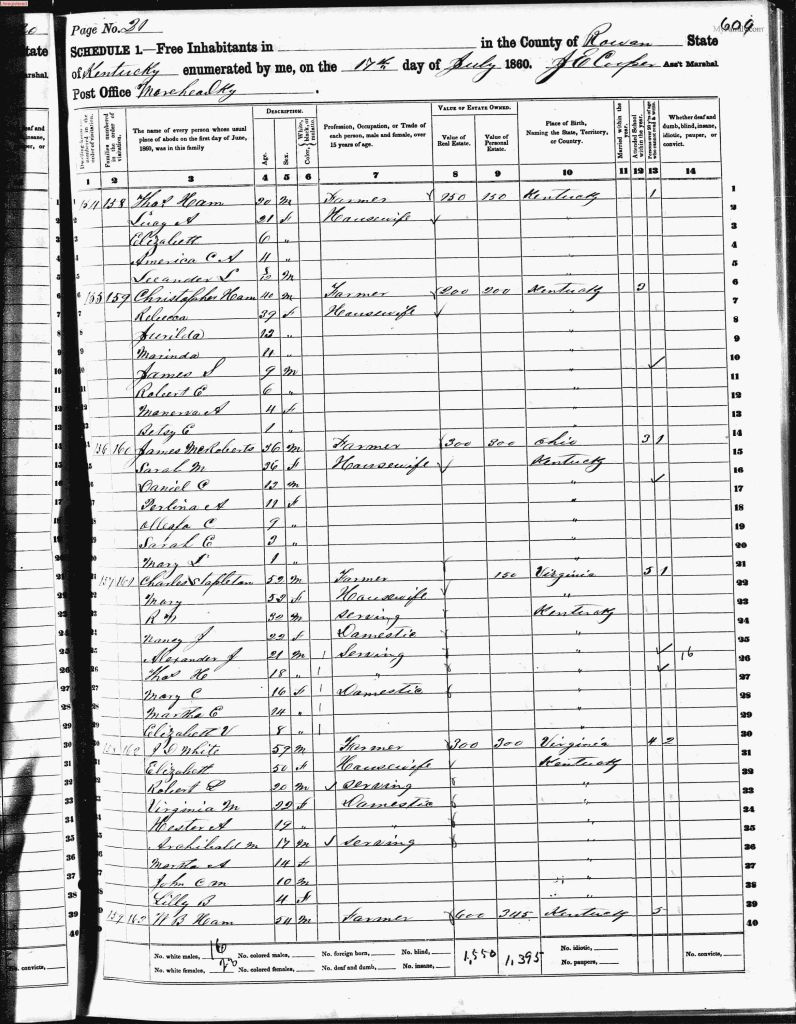 Page No. 21
609
SCHEDULE 1.—Free Inhabitants in in the County of Rowan State
of Kentucky enumerated by me, on the 17th day of July 1860. J E Cooper Ass't Marshal
Post Office Morehead Ky
DESCRIPTION. VALUE OF ESTATE OWNED.
Dwelling-houses numbered in the order of visitation. Families numbered in the order of visitation. The name of every person whose usual place of abode on the first day of June, 1860, was in this family Age. Sex. Color, White, black, or mulatto. Profession, Occupation, or Trade of each person, male and female, over 15 years of age. Value of Real Estate. Value of Personal Estate. Place of Birth, Naming the State, Territory, or Country. Married within the year. Attended School within the year. Persons over 20 y'rs of age who cannot read & write. Whether deaf and dumb, blind, insane, idiotic, pauper, or convict.
1 2 3 4 5 6 7 8 9 10 11 12 13 14
1 154 158 Thos Ham 20 M Farmer 150 150 Kentucky 1 1
2 21 f Housewife " 2
3 Elizabeth 6 " 3
4 America C A 4 " 4
5 Leeander S M " 5
6 155 159 Christopher Ham 40 M Farmer 200 200 Kentucky 6
7 Rebecca 39 f Housewife " 7
8 Jurilda 13 " " 8
9 Marinda 11 " " 9
10 James S 9 M " 10
11 Robert E 6 " " 11
12 Manerva A 4 f " 12
13 Betsy E 1 " " 13
14 156 160 James McRoberts 36 M Farmer 300 300 Ohio 3 1 14
15 Sarah M 36 f Housewife Kentucky 15
16 Daniel C 13 M " 16
17 Perlina A 11 f " 17
18 C 9 " " 18
19 Sarah E 3 " " 19
20 Mary S 1 " " 20
21 157 161 Charles Stapleton 52 M Farmer 150 Virginia 5 1 21
22 Mary 53 f Housewife " 22
23 30 M Serving Kentucky 23
24 Nancy J 22 f Domestic " 24
25 Alexander J 21 M Serving " 16 25
26 Thos H 18 " " " 26
27 Mary C 16 f Domestic " 27
28 Martha E 14 " " 28
29 Elizabeth V 8 " " 29
30 158 162 J D White 59 M Farmer 300 300 Virginia 4 2 30
31 Elizabeth 50 f Housewife Kentucky 31
32 Robert L 20 M Serving " 32
33 Virginia M 22 f Domestic " 33
34 Hester A 19 " " " 34
35 Archibald M 17 M Serving " 35
36 Martha A 14 f " 36
37 John C M 10 M " 37
38 Lilly B 4 f " 38
39 159 163 W B Ham 54 M Farmer 600 345 Kentucky 5 39
40 40
No. white males, 16 No. colored males, No. foreign born, No. blind, 1,550 1,395 No. idiotic, No. convicts,
No. white females, No. colored females, No. deaf and dumb, No. insane, No. paupers,